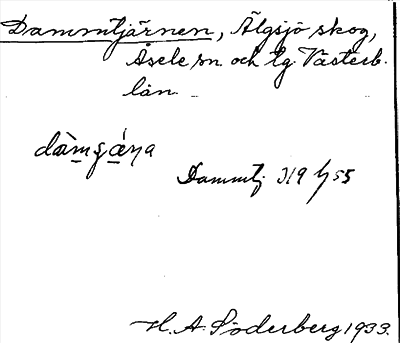 Dammtjärnen, Älgsjö skog,
Åsele sn. och tg. Västerb.
län.
Dammtj. J19
H. A. Söderberg 1933.